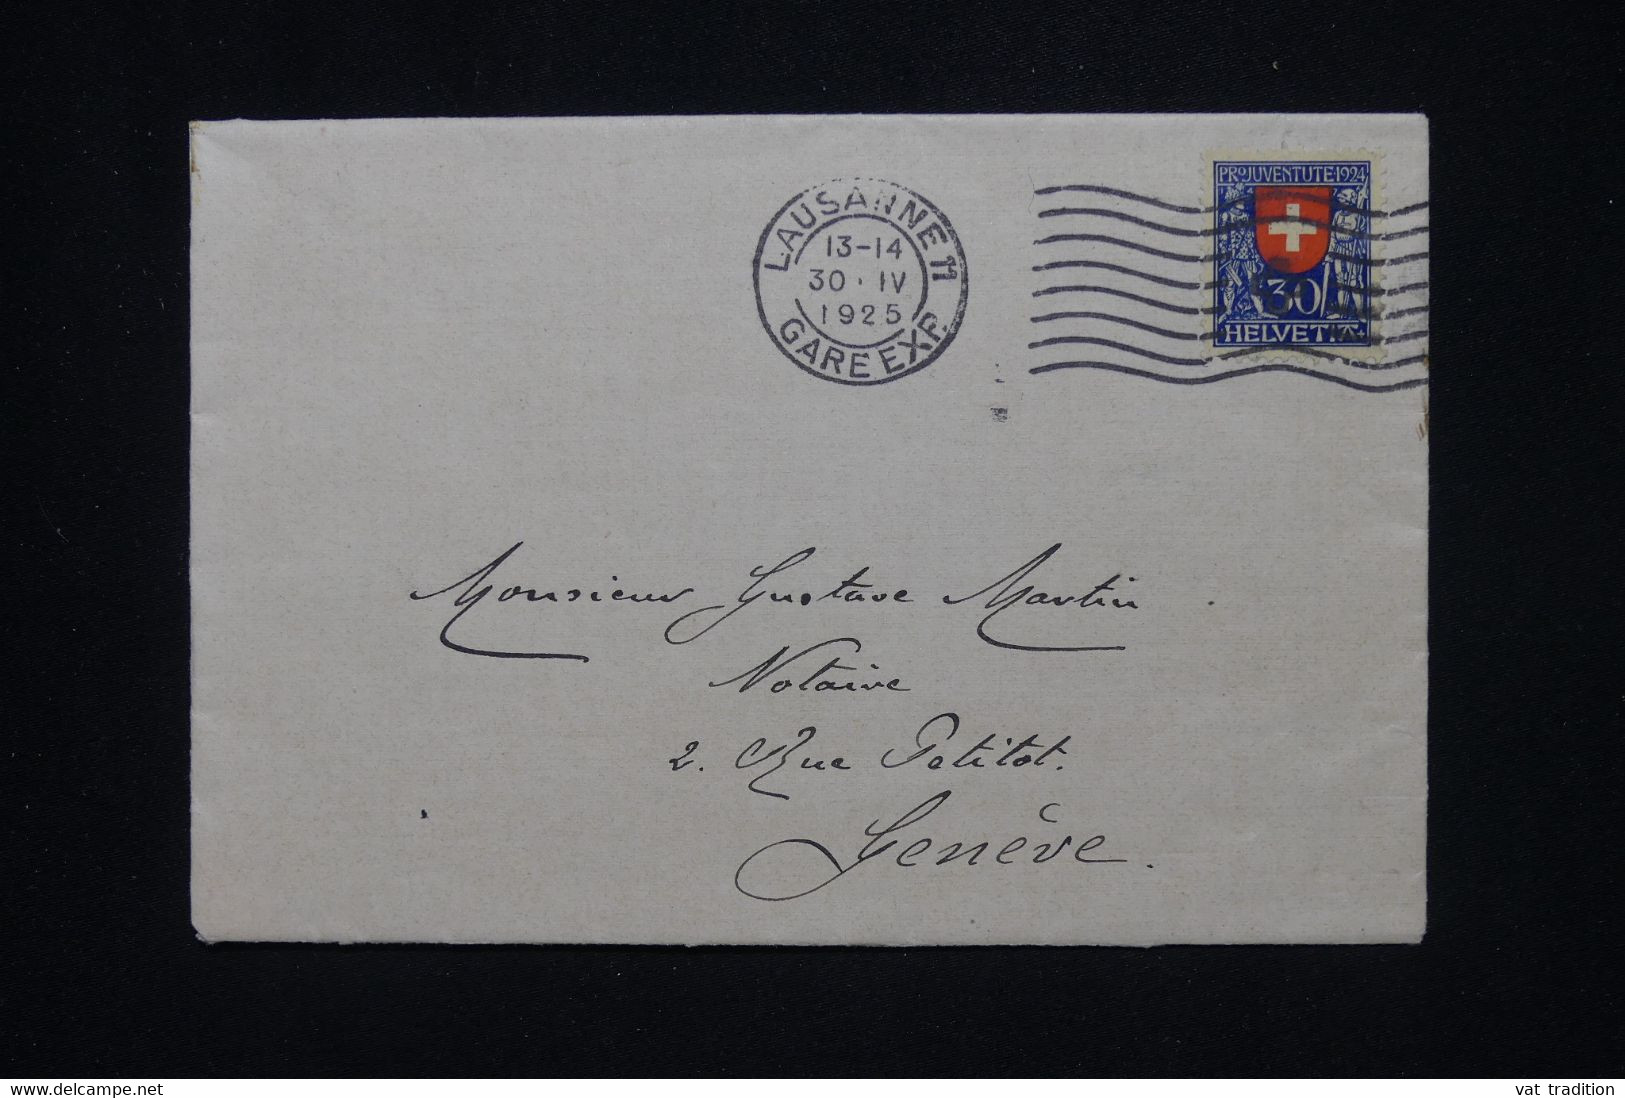 LAUSANNE 11
13-14
30 · IV
1925
GARE EXP.
PRO JUVENTUTE·1924
30
HELVETIA
Monsieur Gustave Martin
Notaire
2. Rue Petitot.
Genève.
www.delcampe.net
vat_tradition